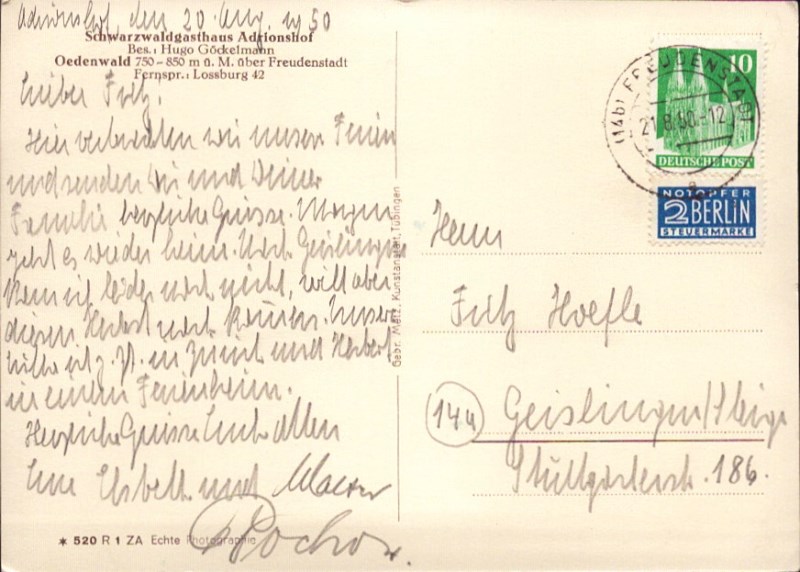 Adrionshof, den 20. Aug. 1950
Schwarzwaldgasthaus Adrionshof
Bes.: Hugo Göckelmann
Oedenwald 750-850 m ü. M. über Freudenstadt
Fernspr.: Lossburg 42
Lieber Fritz.
Hier verbrachten wir unsere Ferien
und senden Dir und Deiner
Familie herzliche Grüsse. Morgen
geht es wieder heim. Nach Geislingen
kam ich leider noch nicht, will aber
diesen Herbst noch kommen. Unsere
ist z. Zt. in und Herbert
in einem Ferienheim.
Herzliche Grüsse Euch allen
Eure Elsbeth und Walter
* 520 R 1 ZA Echte Photographie
Gebr. Metz, Kunstanstalt, Tübingen
(14b) FREUDENSTADT
21.8.50.-12
a
10
DEUTSCHE POST
NOTOPFER
2 BERLIN
STEUERMARKE
Herrn
Fritz Hoefle
14a Geislingen/Steige
Stuttgarterstr. 186.